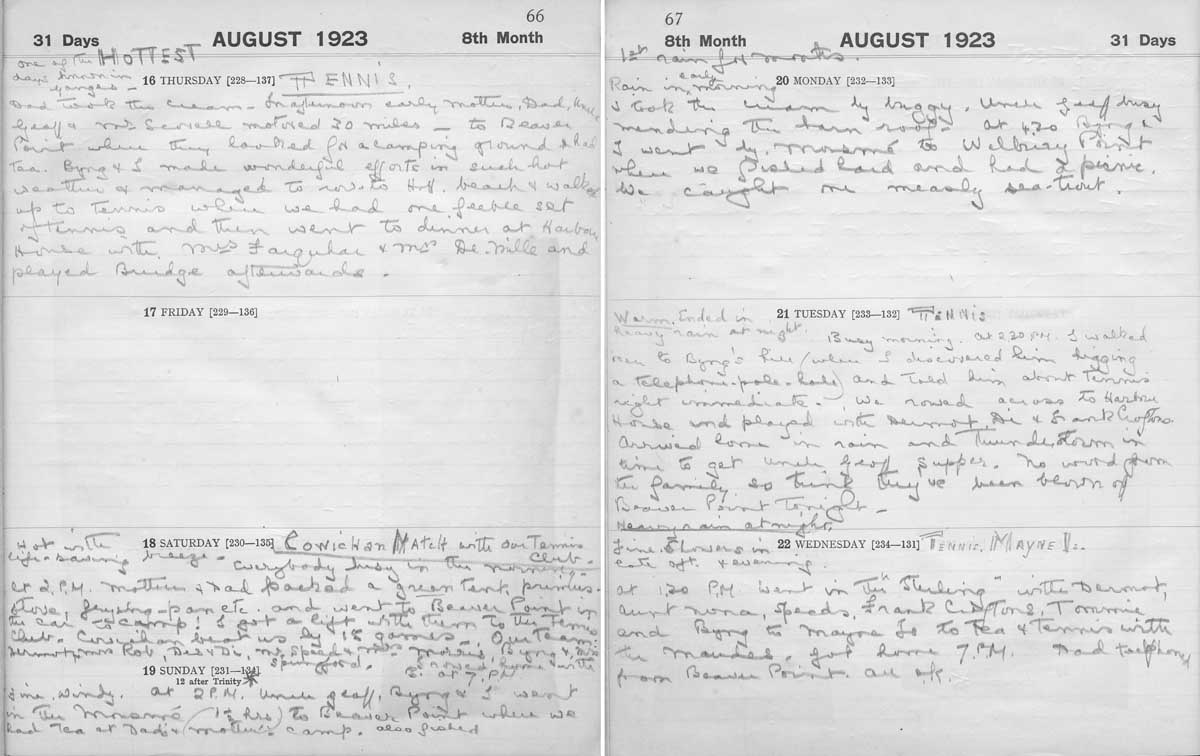 66
31 Days AUGUST 1923 8th Month
one of the HOTTEST
days known in
Ganges -
16 THURSDAY [228—137] TENNIS.
Dad took the cream - In afternoon early mother, Dad, Uncle
Geoff & Mrs Scovell motored 20 miles - to Beaver
Point where they looked for a camping ground & had
Tea. Byng & I made wonderful efforts in such hot
weather & managed to row to beach & walked
up to Tennis where we had one feeble set
of Tennis and then went to dinner at Harbour
House with Mrs Farquhar & Mrs De Mille and
played Bridge afterwards.
17 FRIDAY [229—136]
Hot with
life-saving breeze -
18 SATURDAY [230—135] Cowichan MATCH with our Tennis
Club.
everybody busy in the morning.
at 2 P.M. Mother & Dad packed a green tent, primus-
stove, frying-pan etc. and went to Beaver Point in
the car to camp! I got a lift with them to the Tennis
Club - Cowichan beat us by games. Our Team:
Dermot, Mrs Rob, Des & Di, Mr Speed & Mrs Morris, Byng & Miss
Springford. I rowed home with
at 7 P.M.
19 SUNDAY [231—134]
12 after Trinity
Fine. Windy. at 2 P.M. Uncle Geoff, Byng & I went
in the Monomé (1½ hrs) to Beaver Point where we
had Tea at Dad's & Mother's camp. also fished
67
8th Month AUGUST 1923 31 Days
1st rain for months.
Rain in early morning
20 MONDAY [232—133]
I took the cream by buggy. Uncle Geoff busy
mending the barn roof - at 4.30 Byng &
I went by Monomé to Welbury Point
where we fished hard and had a picnic.
We caught one measly sea-trout.
Warm. Ended in
heavy rain at night.
21 TUESDAY [233—132] TENNIS
Busy morning. at 2.30 P.M. I walked
over to Byng's here (where I discovered him digging
a telephone-pole-hole) and told him about Tennis
right immediate. We rowed across to Harbour
House and played with Dermot, Di & Frank Croftons.
Arrived home in rain and thunderstorm in
time to get Uncle Geoff supper. No word from
the family so think they've been blown off
Beaver Point Tonight -
Heavy rain at night.
Fine. Showers in
late aft. & evening.
22 WEDNESDAY [234—131] TENNIS, MAYNE Is.
at 1.30 P.M. went in the "Sterling" with Dermot,
Aunt Nona, Speeds, Frank Croftons, Tommie
and Byng to Mayne Is to Tea & Tennis with
the Maudes. got home 7 P.M. Dad telephoned
from Beaver Point. all o.k.